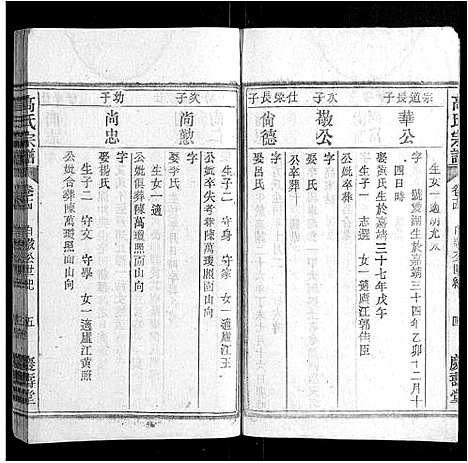 高氏宗譜
慶壽堂
生女一適胡光承
宗道長子
華公
字 號愛湖生於嘉靖三十四年乙卯十二月十
四日時
娶黃氏生於嘉靖三十七年戊午
生子一 志選 女一適廬江郭佳臣
公卒葬
次子
敬公
仕榮長子
尚德
娶呂氏
次子
尚懃
字
娶李氏
生子二 守身 守家 女一適廬江王
公妣卒失考葬陳萬瓊照面山向
生女一適
公妣俱葬陳萬瓊照面山向
幼子
尚忠
字
娶楊氏
生子二 守文 守學 女一適廬江黃照
公妣合葬陳萬瓊照面山向
高氏宗譜
五
慶壽堂